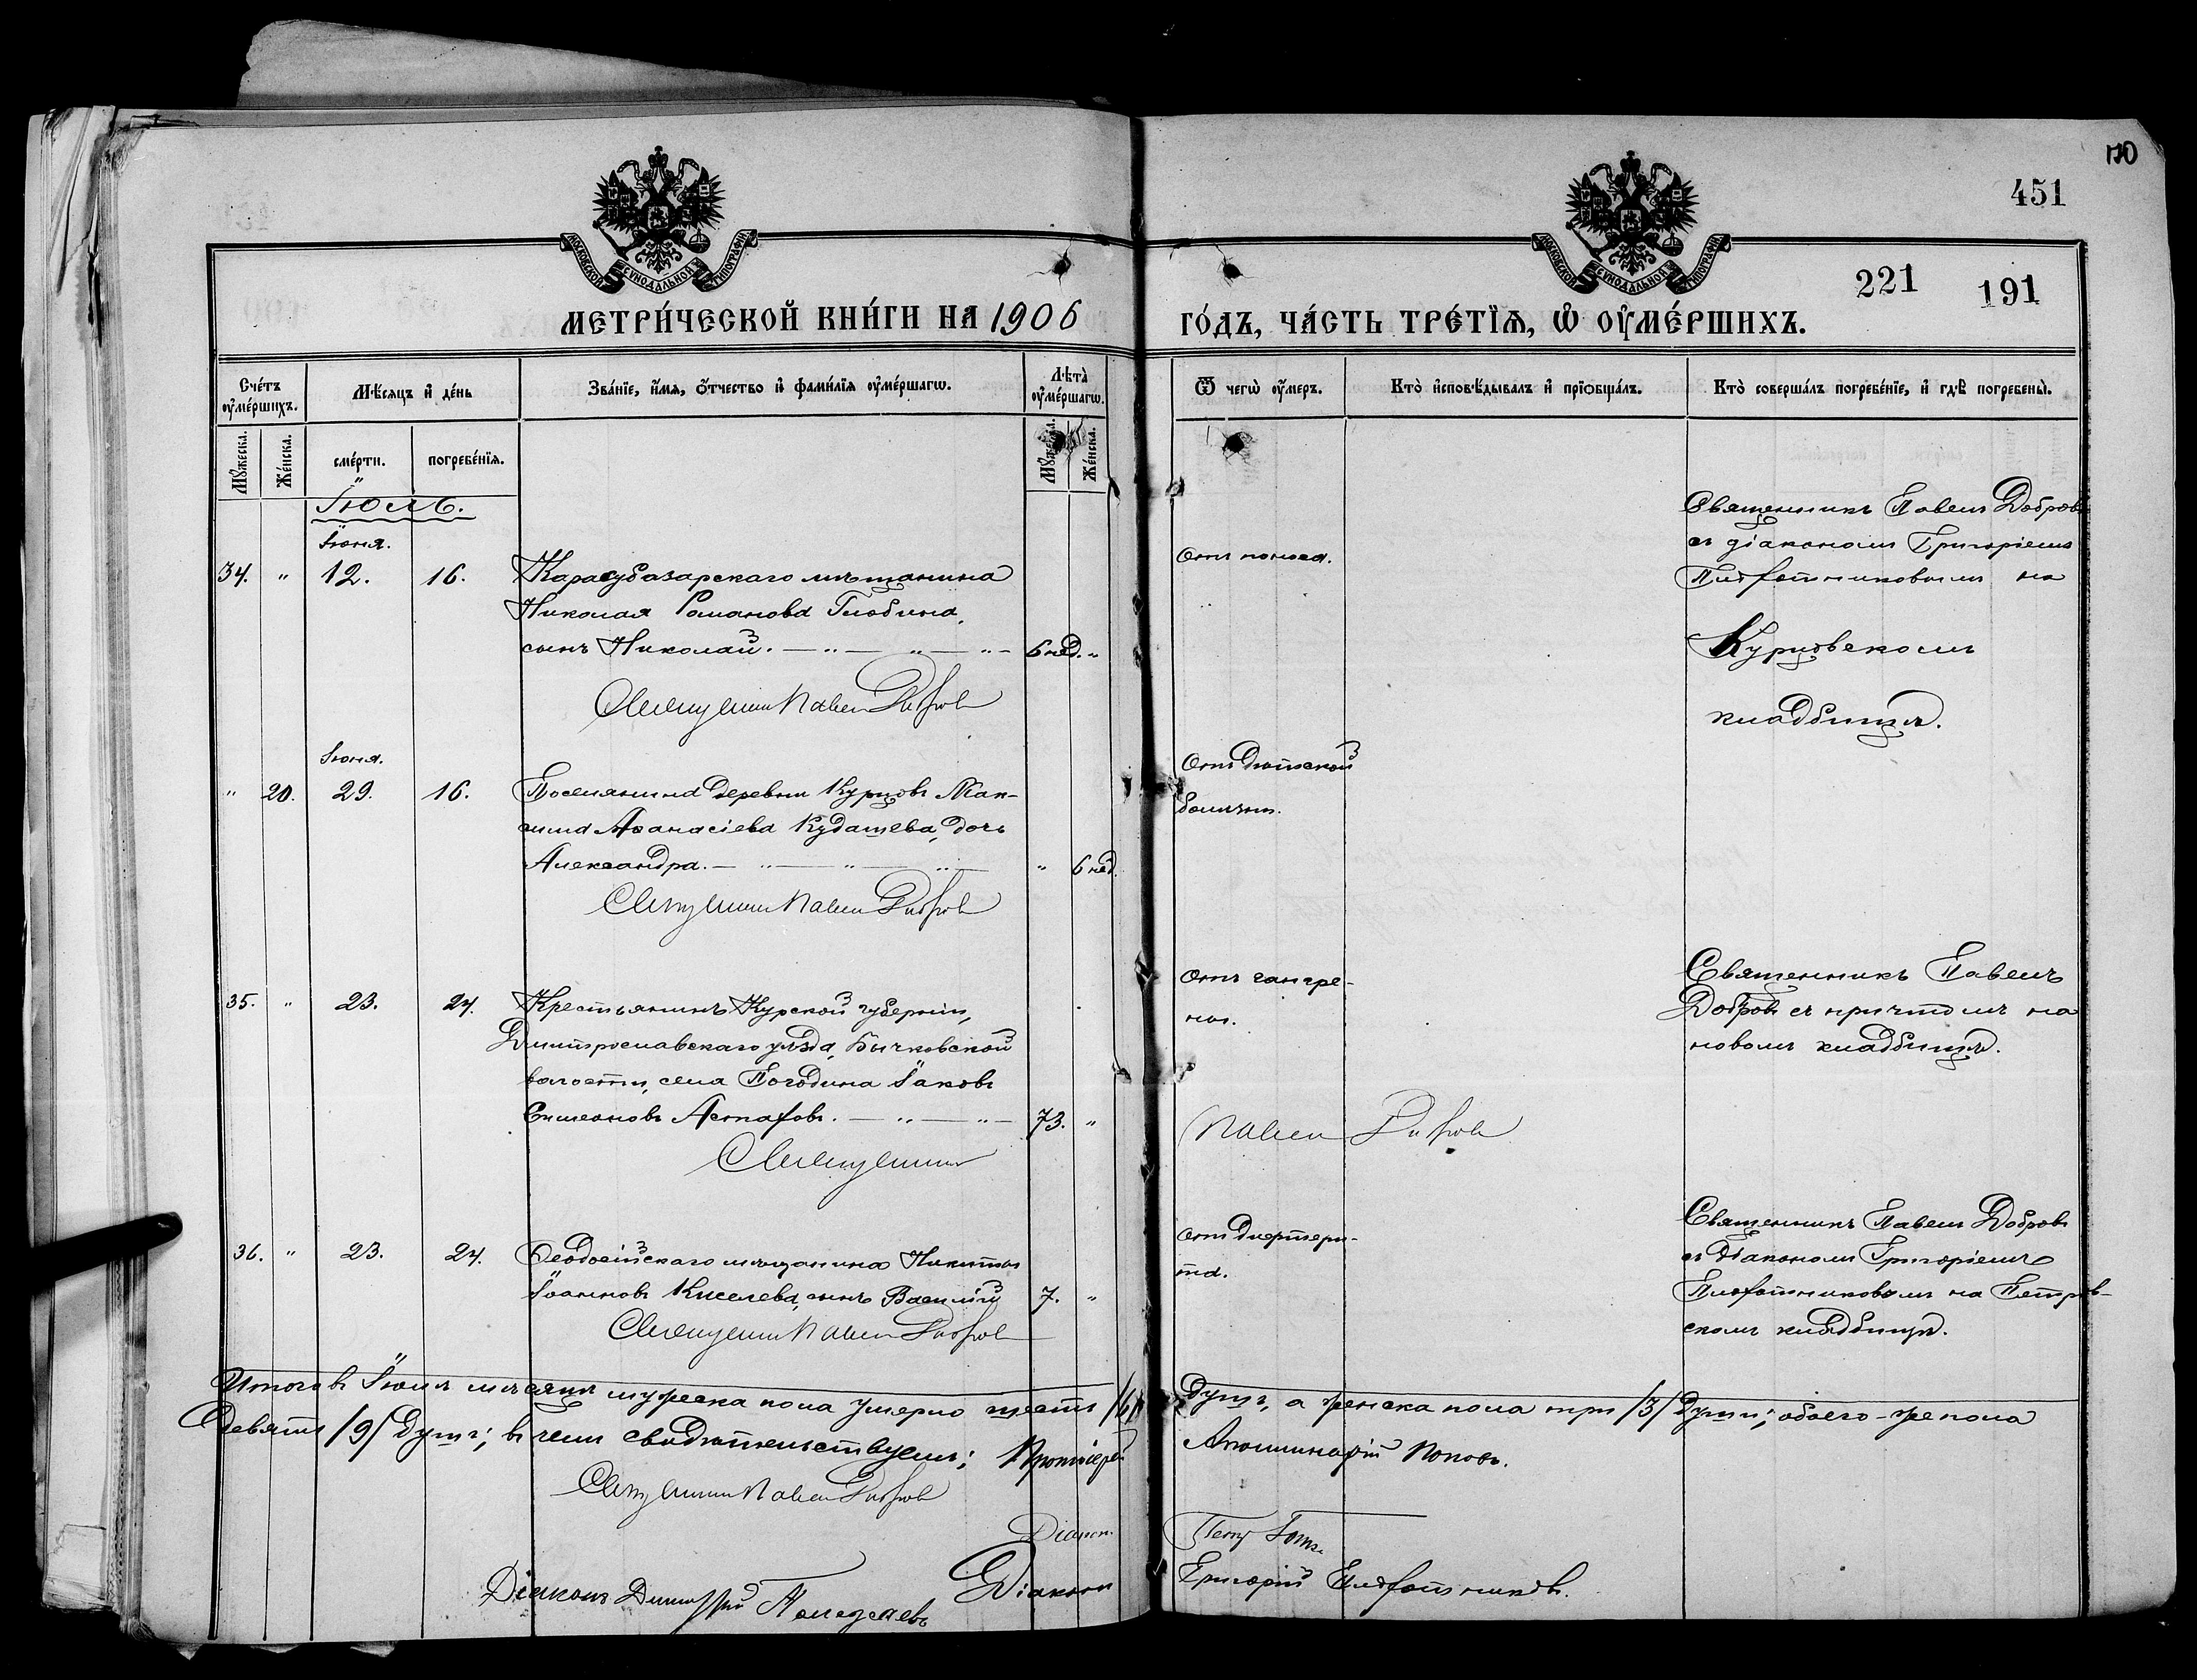 170
451
МОСКОВСКОЙ СУНОДАЛЬНОЙ ТИПОГРАФІИ
МОСКОВСКОЙ СУНОДАЛЬНОЙ ТИПОГРАФІИ
221 191
МЕТРИ́ЧЕСКОЙ КНИ́ГИ НА 1906 ГО́ДЪ, ЧА́СТЬ ТРЕ́ТІѦ, Ѡ҆ ОУ҆МЕ́РШИХЪ.
Счетъ оумершихъ.
Мѣсяцъ и день
Званіе, имя, отчество и фамилія оумершагѡ.
Лѣта оумершагѡ.
Ѿ чегѡ оумеръ.
Кто исповѣдывалъ и пріобщалъ.
Кто совершалъ погребеніе, и гдѣ погребены.
Мужеска.
Женска.
смерти.
погребенія.
Мужеска.
Женска.
Іюль.
Іюня.
34. " 12. 16. Карасубазарскаго мѣщанина
Николая Романова Глобина,
сынъ Николай. — " — " — " — 6 нед. "
Священникъ Павелъ Добровъ
Отъ поноса.
Священникъ Павелъ Добровъ
съ діакономъ Григоріемъ
Плотниковымъ на
Курцовскомъ
кладбищѣ.
Іюня.
" 20. 29. 16. Поселянина деревни Курцовъ Мак-
сима Аѳанасіева Кудашева, дочь
Александра. — " — " — " — " 6 нед.
Священникъ Павелъ Добровъ
Отъ дѣтской
болѣзни.
35. " 23. 24. Крестьянинъ Курской губерніи,
Дмитрославскаго уѣзда, Бычковской
волости, села Погодина Іаковъ
Симеоновъ Астафовъ. — " — " — 73. "
Священникъ Павелъ Добровъ
Отъ гангре-
ны.
Священникъ Павелъ
Добровъ съ причтомъ на
новомъ кладбищѣ.
36. " 23. 24. Ѳеодосійскаго мѣщанина Никиты
Іоаннова Киселева, сынъ Василій 7. "
Священникъ Павелъ Добровъ
отъ дифтери-
та.
Священникъ Павелъ Добровъ
съ діакономъ Григоріемъ
Плотниковымъ на Петров-
скомъ кладбищѣ.
Итого въ Іюлѣ мѣсяцѣ мужеска пола умерло шесть /6/ душъ, а женска пола три /3/ души; обоего-же пола
девять /9/ душъ; въ чемъ свидѣтельствуемъ: Протоіерей Аполлинарій Поповъ.
Священникъ Павелъ Добровъ
Діакон.
Діаконъ Григорій Плотниковъ.
Діаконъ Димитрій